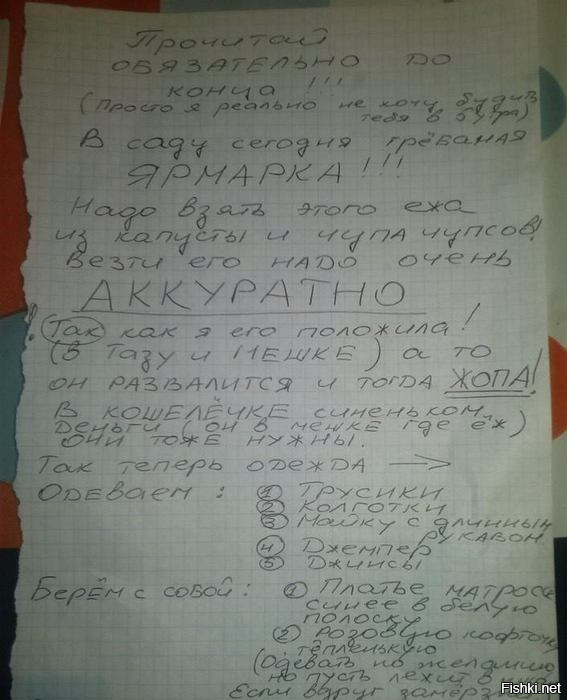 Прочитай
ОБЯЗАТЕЛЬНО ДО
конца !!!
(Просто я реально не хочу будить
тебя в 6 утра)
В саду сегодня грёбаная
ЯРМАРКА !!!
Надо взять этого ежа
из капусты и чупа чупсов!
Везти его надо очень
АККУРАТНО
! (Так как я его положила!
(в тазу и мешке) а то
он развалится и тогда ЖОПА!
В кошелёчке синеньком
деньги (он в мешке где ёж)
они тоже нужны.
Так теперь одежда →
Одеваем : ① Трусики
② Колготки
③ Майку с длинным
рукавом
④ Джемпер
⑤ Джинсы
Берём с собой : ① Платье матроса
синее в белую
полоску
② розовую кофточку
тёпленькую
(Одевать по желанию
но пусть лежит в
Если вдруг замёрз
Fishki.net